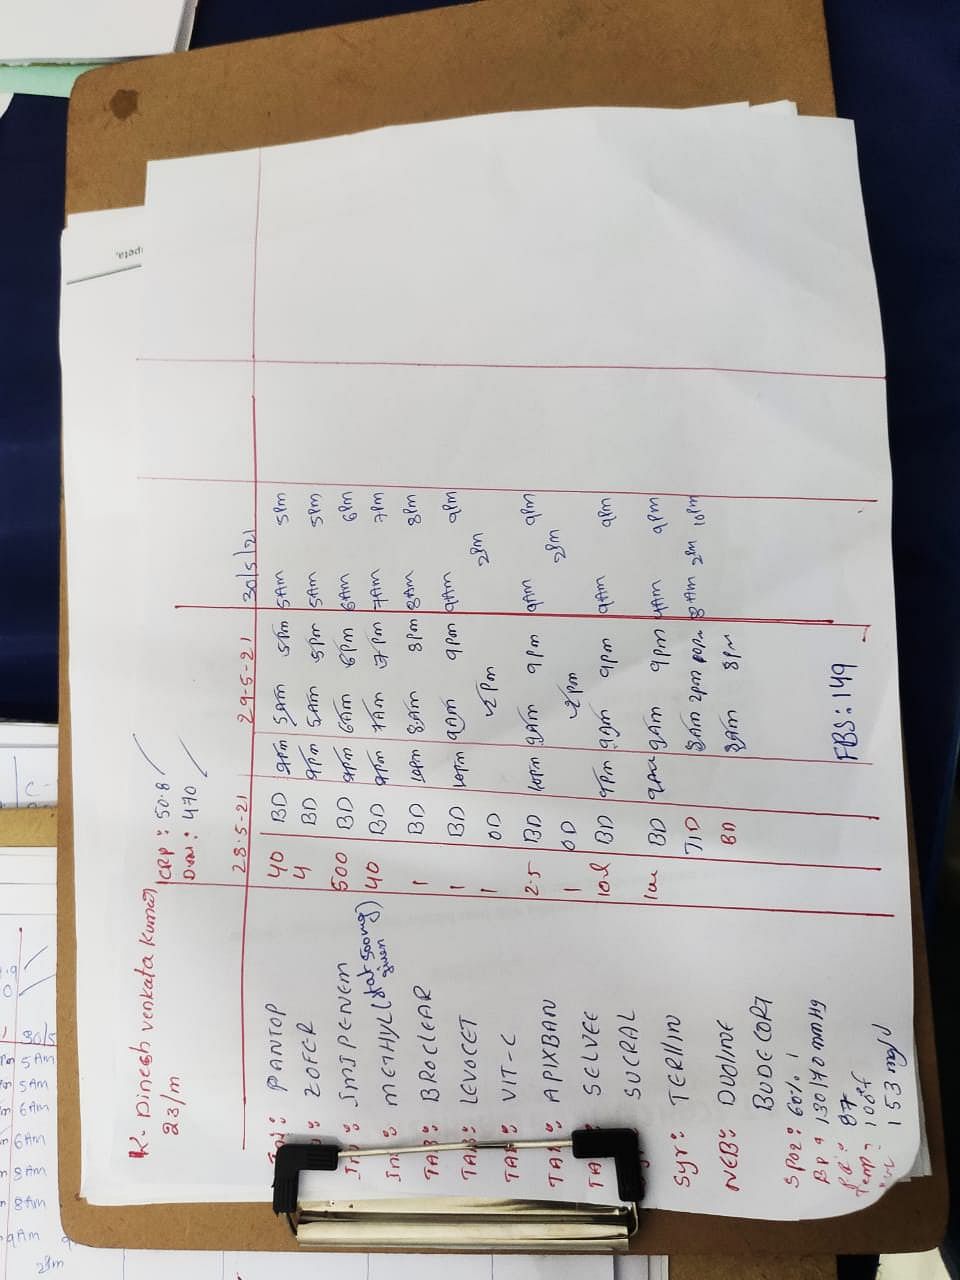 K. Dinesh Venkata Kumar
23/m
CRP : 50.8
470
28.5.21 29-5-21 30/5/21
PANTOP 40 BD 9Pm 5AM 5Pm 5AM 5Pm
ZOFER 4 BD 9Pm 5AM 5Pm 5AM 5Pm
Inj: IMIPENEM 500 BD 9Pm 6AM 6Pm 6AM 6Pm
Inj: METHYL (stat 500mg given) 40 BD 9Pm 7AM 7Pm 7AM 7Pm
TAB: BROCLEAR 1 BD 10Pm 8AM 8Pm 8AM 8Pm
TAB: LEVOCET 1 BD 10Pm 9AM 9Pm 9AM 9Pm
TAB: VIT-C 1 OD 2Pm 2Pm
TAB: APIXBAN 2.5 BD 10Pm 9AM 9Pm 9AM 9Pm
SELVEE 1 OD 2Pm 2Pm
SUCRAL BD 9Pm 9AM 9Pm 9AM 9Pm
Syr: TERLIN BD 9AM 9Pm 9AM 9Pm
NEB: DUOLINE TID 8AM 2Pm 8AM 2Pm 10Pm
BUDECORT BD 8AM 8Pm
SPO2 : 60%
BP : 130170 mmHg
87
Temp: 100°f
153 mg/d
FBS : 149
30/5
5AM
5AM
6AM
6AM
8AM
8AM
9AM
2Pm